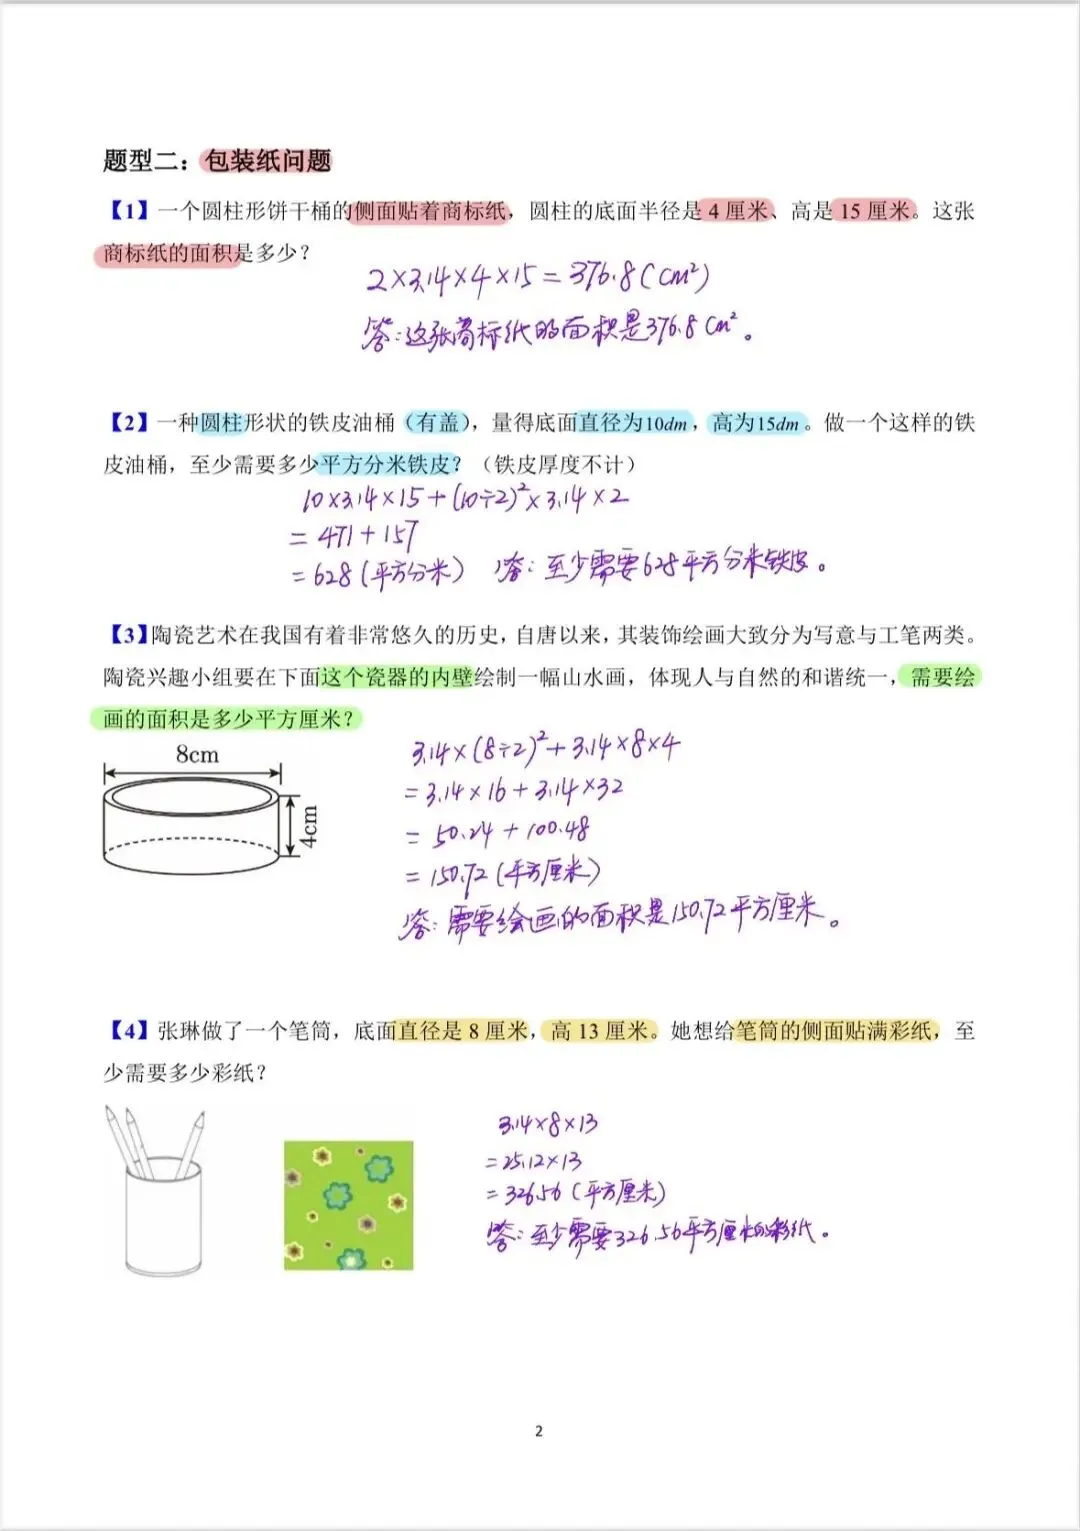 题型二：包装纸问题
【1】一个圆柱形饼干桶的侧面贴着商标纸，圆柱的底面半径是 4 厘米、高是 15 厘米。这张
商标纸的面积是多少？
2×3.14×4×15=376.8(cm²)
答:这张商标纸的面积是376.8cm²。
【2】一种圆柱形状的铁皮油桶（有盖），量得底面直径为10dm，高为15dm。做一个这样的铁
皮油桶，至少需要多少平方分米铁皮？（铁皮厚度不计）
10×3.14×15+(10÷2)²×3.14×2
=471+157
=628(平方分米) 答:至少需要628平方分米铁皮。
【3】陶瓷艺术在我国有着非常悠久的历史，自唐以来，其装饰绘画大致分为写意与工笔两类。
陶瓷兴趣小组要在下面这个瓷器的内壁绘制一幅山水画，体现人与自然的和谐统一，需要绘
画的面积是多少平方厘米？
8cm
4cm
3.14×(8÷2)²+3.14×8×4
=3.14×16+3.14×32
=50.24+100.48
=150.72(平方厘米)
答:需要绘画的面积是150.72平方厘米。
【4】张琳做了一个笔筒，底面直径是 8 厘米，高 13 厘米。她想给笔筒的侧面贴满彩纸，至
少需要多少彩纸？
3.14×8×13
=25.12×13
=326.56(平方厘米)
答:至少需要326.56平方厘米的彩纸。
2